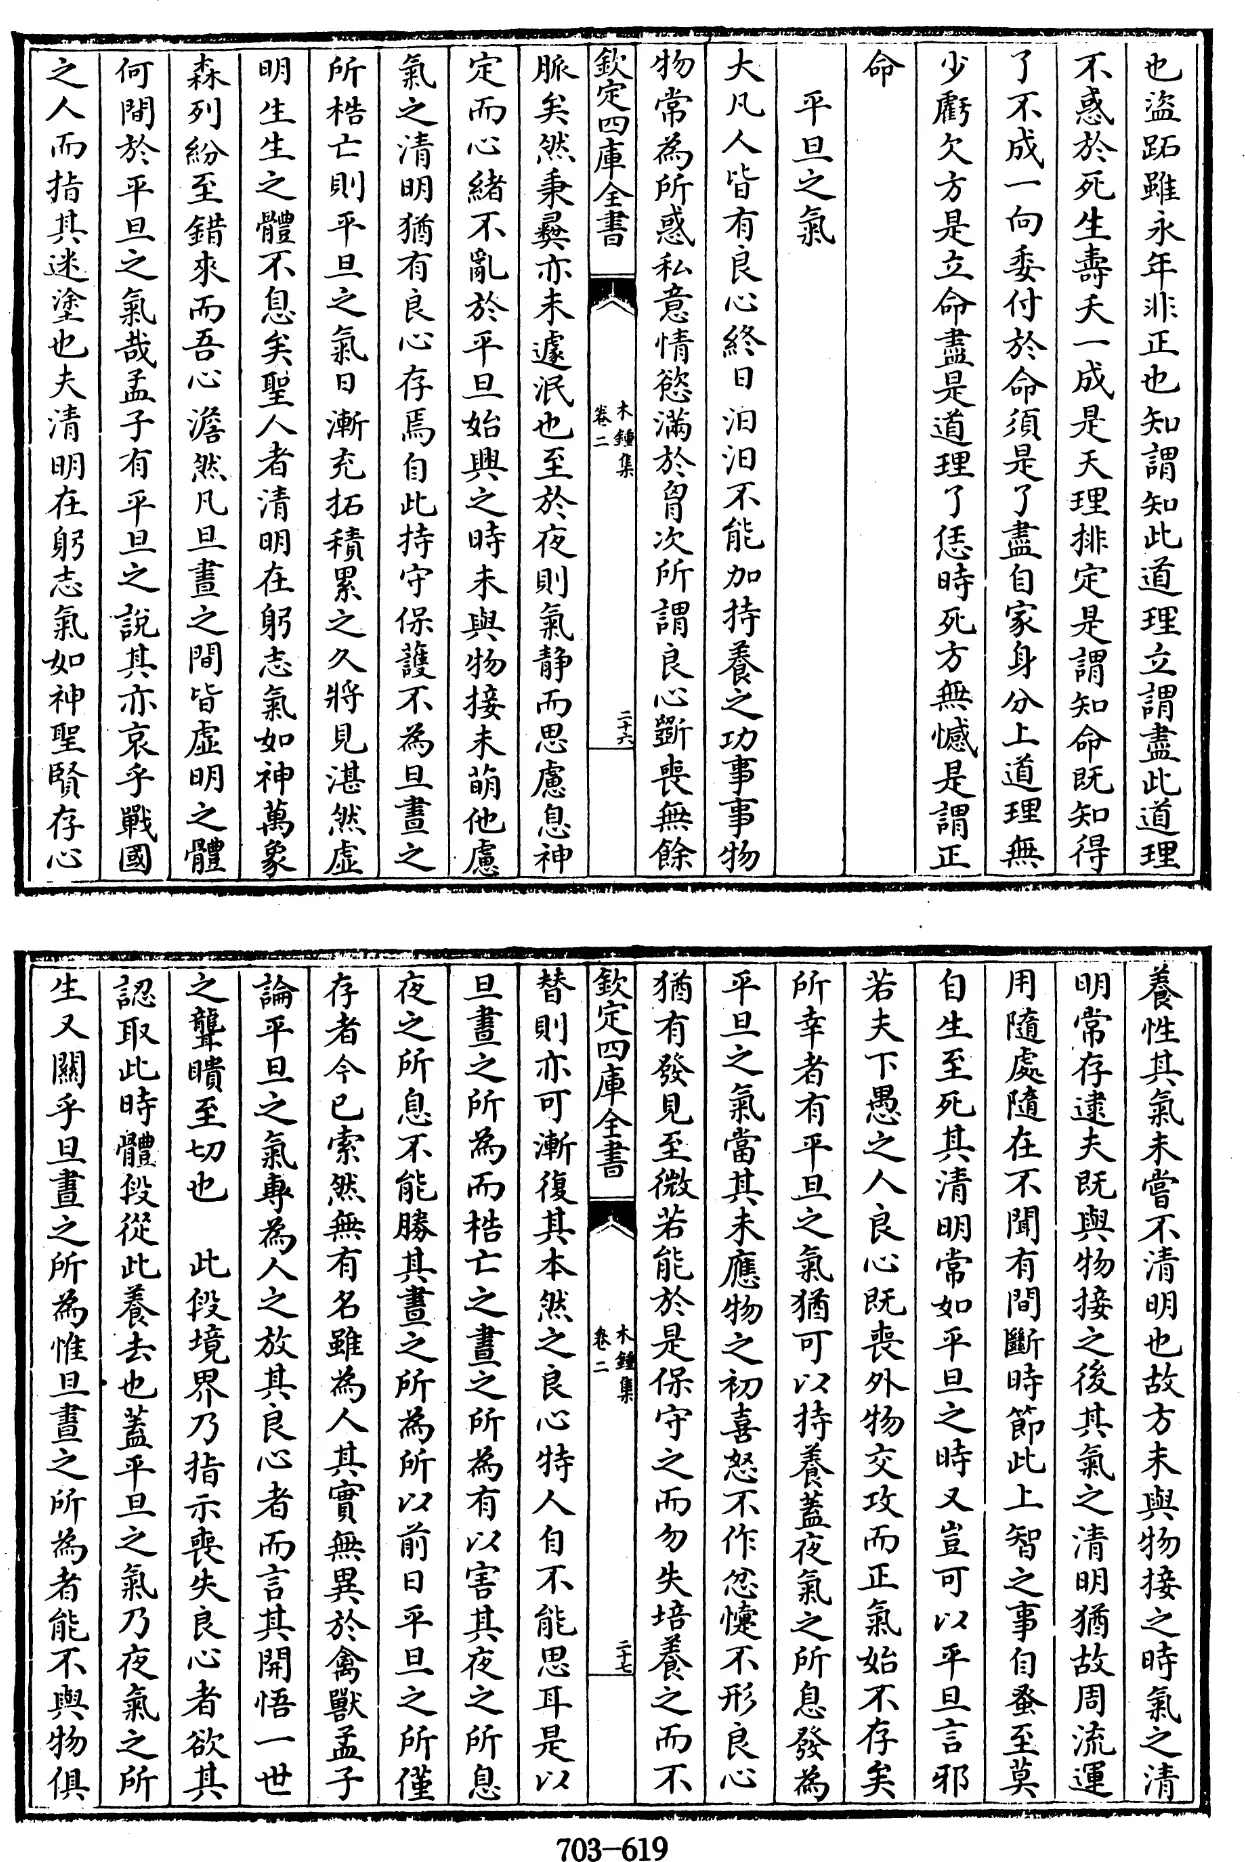 也盜跖雖永年非正也知謂知此道理立謂盡此道理
不惑於死生壽夭一成是天理排定是謂知命既知得
了不成一向委付於命須是了盡自家身分上道理無
少虧欠方是立命盡是道理了恁時死方無憾是謂正
命
平旦之氣
大凡人皆有良心終日汨汨不能加持養之功事事物
物常為所惑私意情慾滿於胷次所謂良心斲喪無餘
欽定四庫全書
木鍾集
卷二
二十六
脈矣然秉彞亦未遽泯也至於夜則氣静而思慮息神
定而心緒不亂於平旦始興之時未與物接未萌他慮
氣之清明猶有良心存焉自此持守保護不為旦晝之
所梏亡則平旦之氣日漸充拓積累之久將見湛然虛
明生生之體不息矣聖人者清明在躬志氣如神萬象
森列紛至錯來而吾心澹然凡旦晝之間皆虛明之體
何間於平旦之氣哉孟子有平旦之說其亦哀乎戰國
之人而指其迷塗也夫清明在躬志氣如神聖賢存心
養性其氣未嘗不清明也故方未與物接之時氣之清
明常存逮夫既與物接之後其氣之清明猶故周流運
用隨處隨在不聞有間斷時節此上智之事自蚤至莫
自生至死其清明常如平旦之時又豈可以平旦言邪
若夫下愚之人良心既喪外物交攻而正氣始不存矣
所幸者有平旦之氣猶可以持養蓋夜氣之所息發為
平旦之氣當其未應物之初喜怒不作忿懥不形良心
猶有發見至微若能於是保守之而勿失培養之而不
欽定四庫全書
木鍾集
卷二
二十七
替則亦可漸復其本然之良心特人自不能思耳是以
旦晝之所為而梏亡之晝之所為有以害其夜之所息
夜之所息不能勝其晝之所為所以前日平旦之所僅
存者今已索然無有名雖為人其實無異於禽獸孟子
論平旦之氣專為人之放其良心者而言其開悟一世
之聾瞶至切也 此段境界乃指示喪失良心者欲其
認取此時體段從此養去也蓋平旦之氣乃夜氣之所
生又關乎旦晝之所為惟旦晝之所為者能不與物俱
703-619